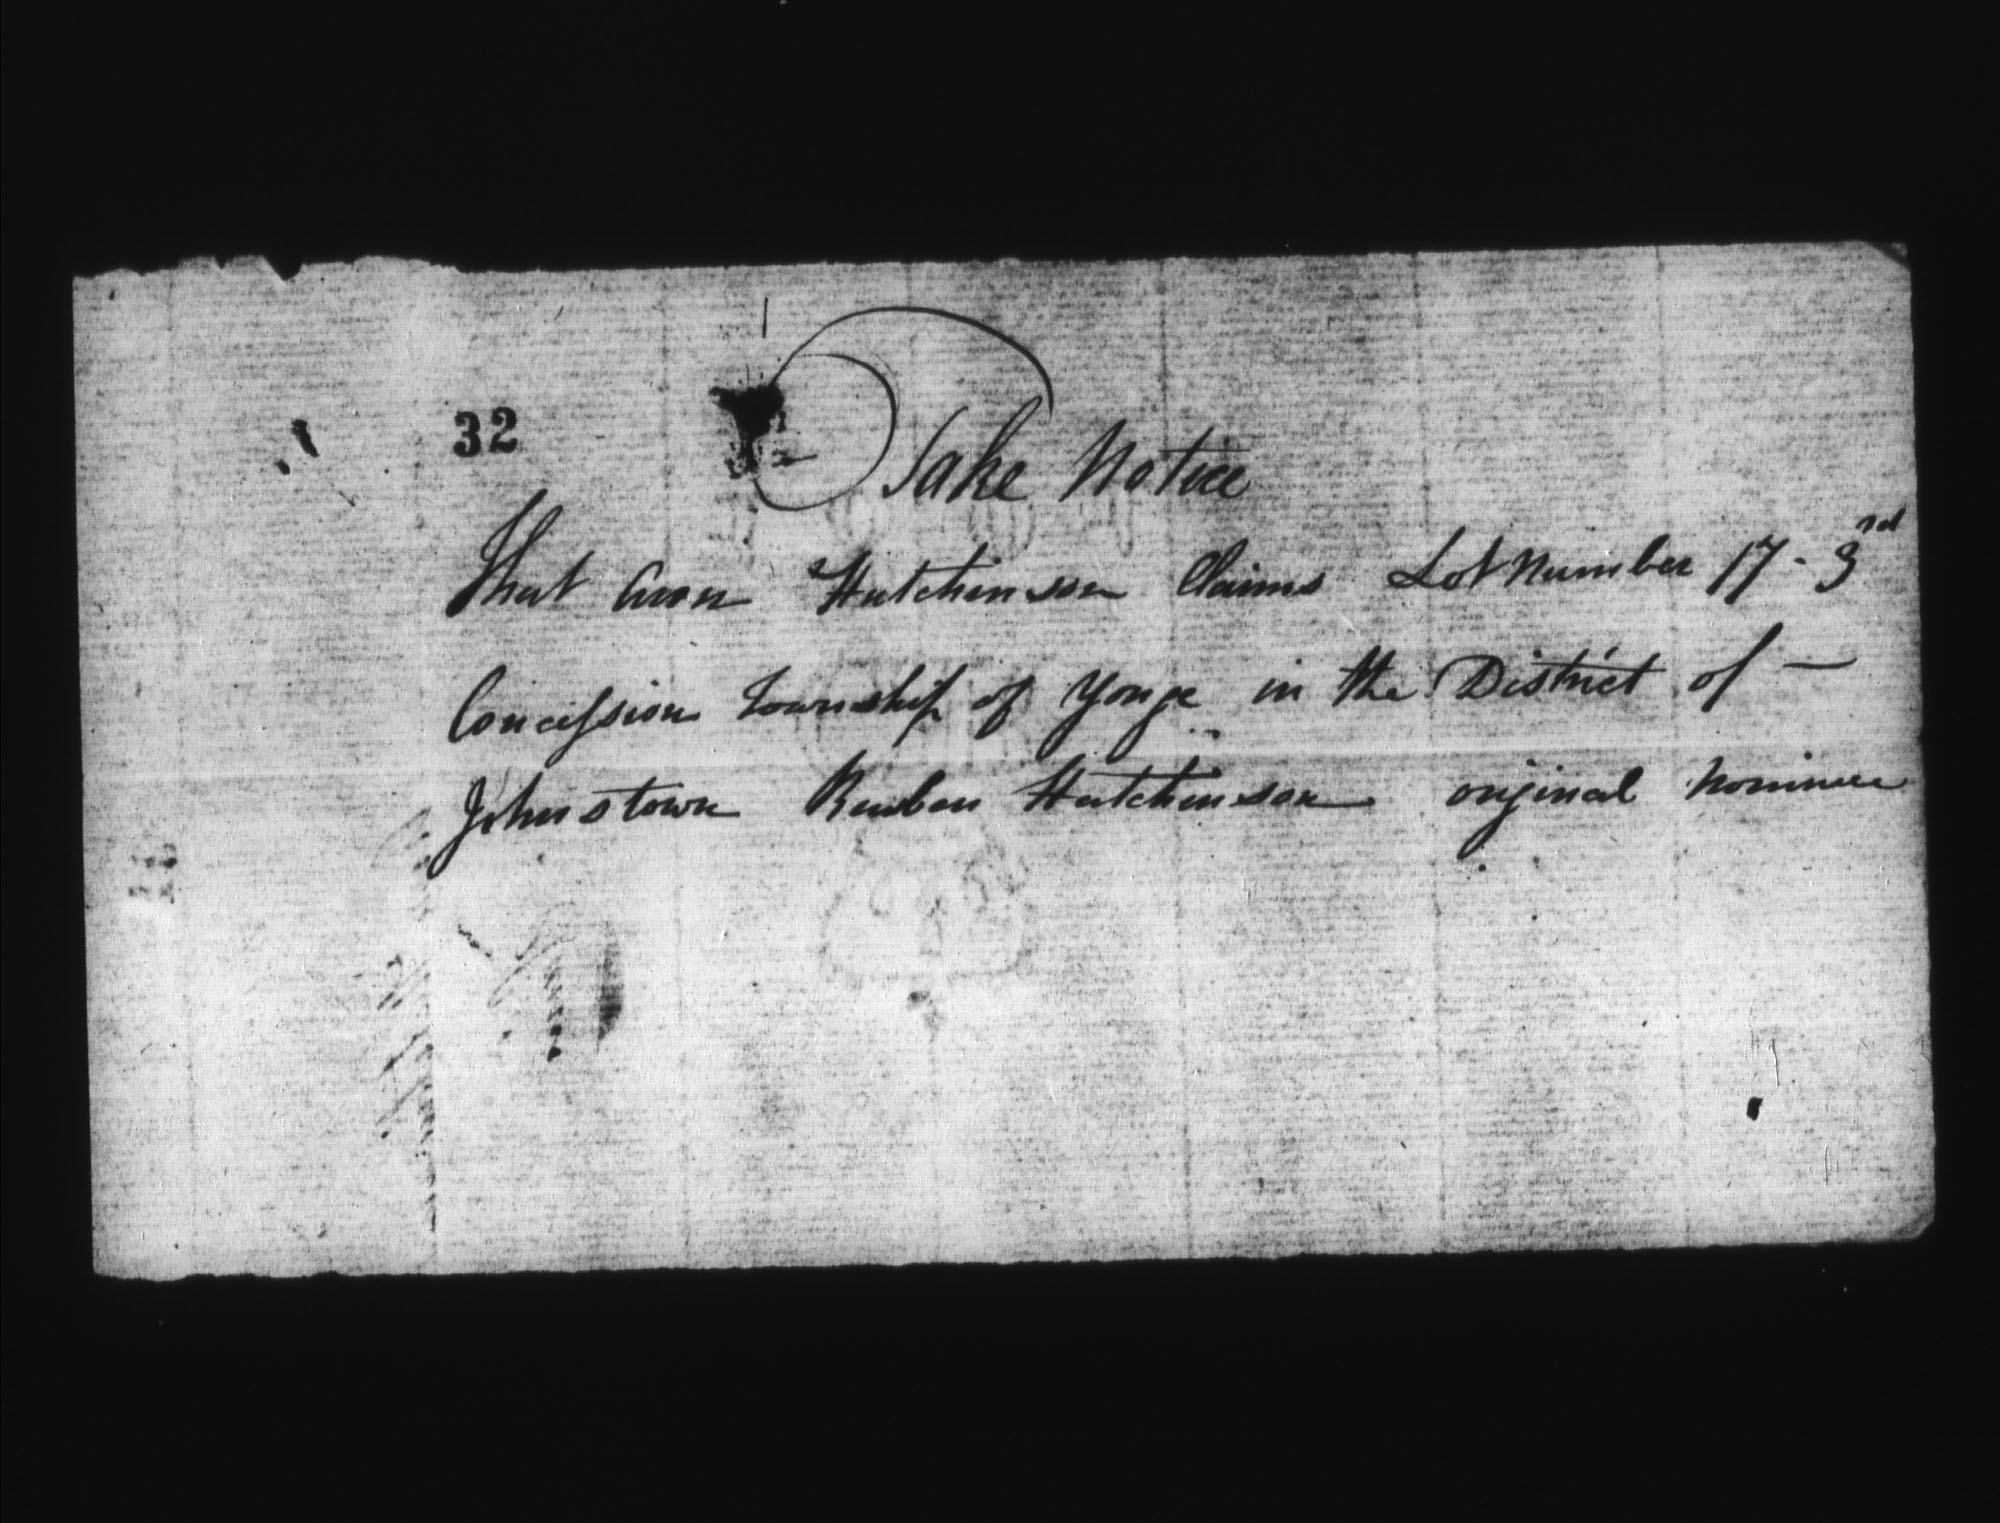 32
Take Notice
That Aron Hutchinson Claims Lot Number 17 - 3rd
Concession Township of Yonge in the District of —
Johnstown Reuben Hutchinson original nominee